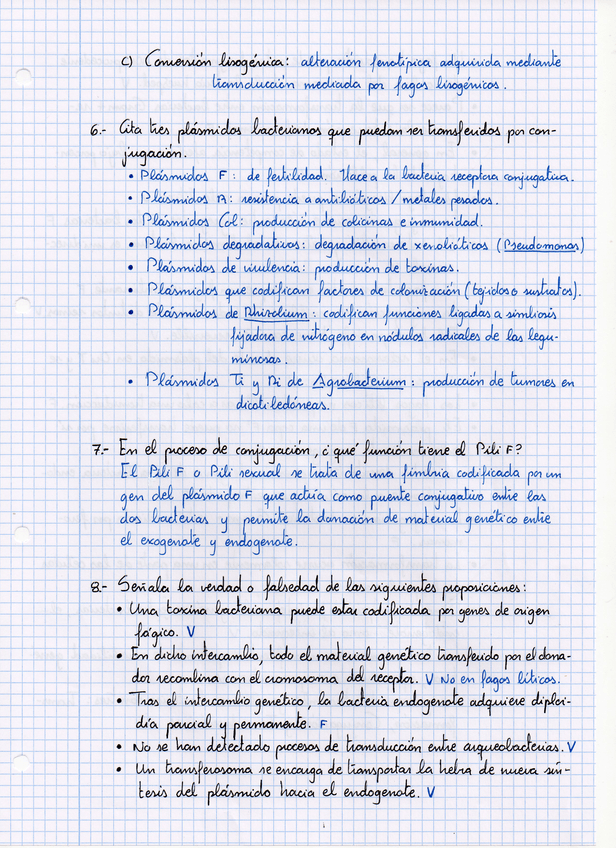 c) Conversión lisogénica: alteración fenotípica adquirida mediante
transducción mediada por fagos lisogénicos.
6.- Cita tres plásmidos bacterianos que puedan ser transferidos por con-
jugación.
• Plásmidos F: de fertilidad. Hace a la bacteria receptora conjugativa.
• Plásmidos R: resistencia a antibióticos / metales pesados.
• Plásmidos Col: producción de colicinas e inmunidad.
• Plásmidos degradativos: degradación de xenobióticos (Pseudomonas)
• Plásmidos de virulencia: producción de toxinas.
• Plásmidos que codifican factores de colonización (tejidos o sustratos).
• Plásmidos de Rhizobium: codifican funciones ligadas a simbiosis
fijadora de nitrógeno en nódulos radicales de las legu-
minosas.
• Plásmidos Ti y Ri de Agrobacterium: producción de tumores en
dicotiledóneas.
7.- En el proceso de conjugación, ¿qué función tiene el Pili F?
El Pili F o Pili sexual se trata de una fimbria codificada por un
gen del plásmido F que actúa como puente conjugativo entre las
dos bacterias y permite la donación de material genético entre
el exogenote y endogenote.
8.- Señala la verdad o falsedad de las siguientes proposiciones:
• Una toxina bacteriana puede estar codificada por genes de origen
fágico. V
• En dicho intercambio, todo el material genético transferido por el dona-
dor recombina con el cromosoma del receptor. V No en fagos líticos.
• Tras el intercambio genético, la bacteria endogenote adquiere diploi-
día parcial y permanente. F
• No se han detectado procesos de transducción entre arqueobacterias. V
• Un transferosoma se encarga de transportar la hebra de nueva sín-
tesis del plásmido hacia el endogenote. V